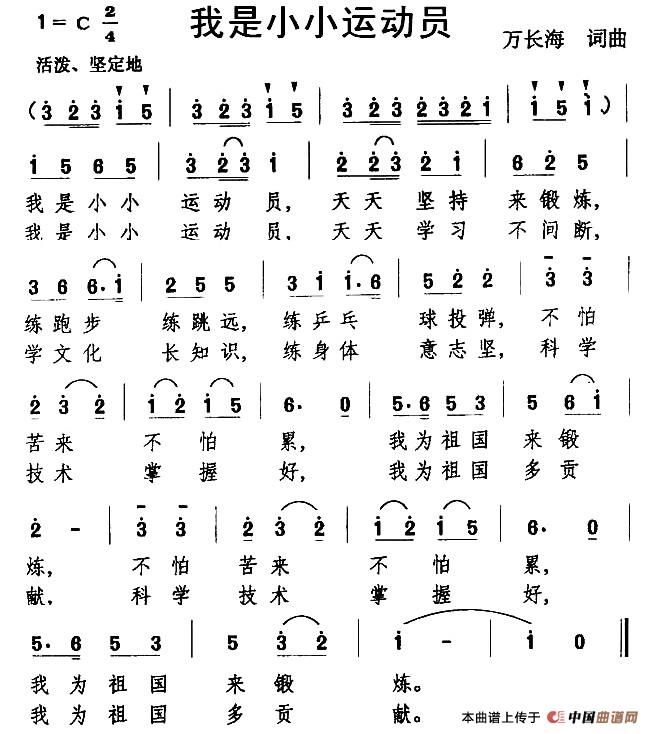 我是小小运动员
1=C 2/4
万长海 词曲
活泼、坚定地
(3 2 3 1 5 | 3 2 3 1 5 | 3 2 3 2 3 2 1 | 1 5 1) |
1 5 6 5 | 3 2 3 1 | 2 2 3 2 1 | 6 2 5 |
我是小小 运动员, 天天坚持 来锻炼,
我是小小 运动员, 天天学习 不间断,
3 6 6·1 | 2 5 5 | 3 1 1·6 | 5 2 2 | 3 3 |
练跑步 练跳远, 练乒乓 球投弹, 不怕
学文化 长知识, 练身体 意志坚, 科学
2 3 2 | 1 2 1 5 | 6· 0 | 5·6 5 3 | 5 6 1 |
苦来 不怕 累, 我为祖国 来锻
技术 掌握 好, 我为祖国 多贡
2 - | 3 3 | 2 3 2 | 1 2 1 5 | 6· 0 |
炼, 不怕 苦来 不怕 累,
献, 科学 技术 掌握 好,
5·6 5 3 | 5 3 2 | 1 - | 1 0 ‖
我为祖国 来锻 炼。
我为祖国 多贡 献。
本曲谱上传于 中国曲谱网